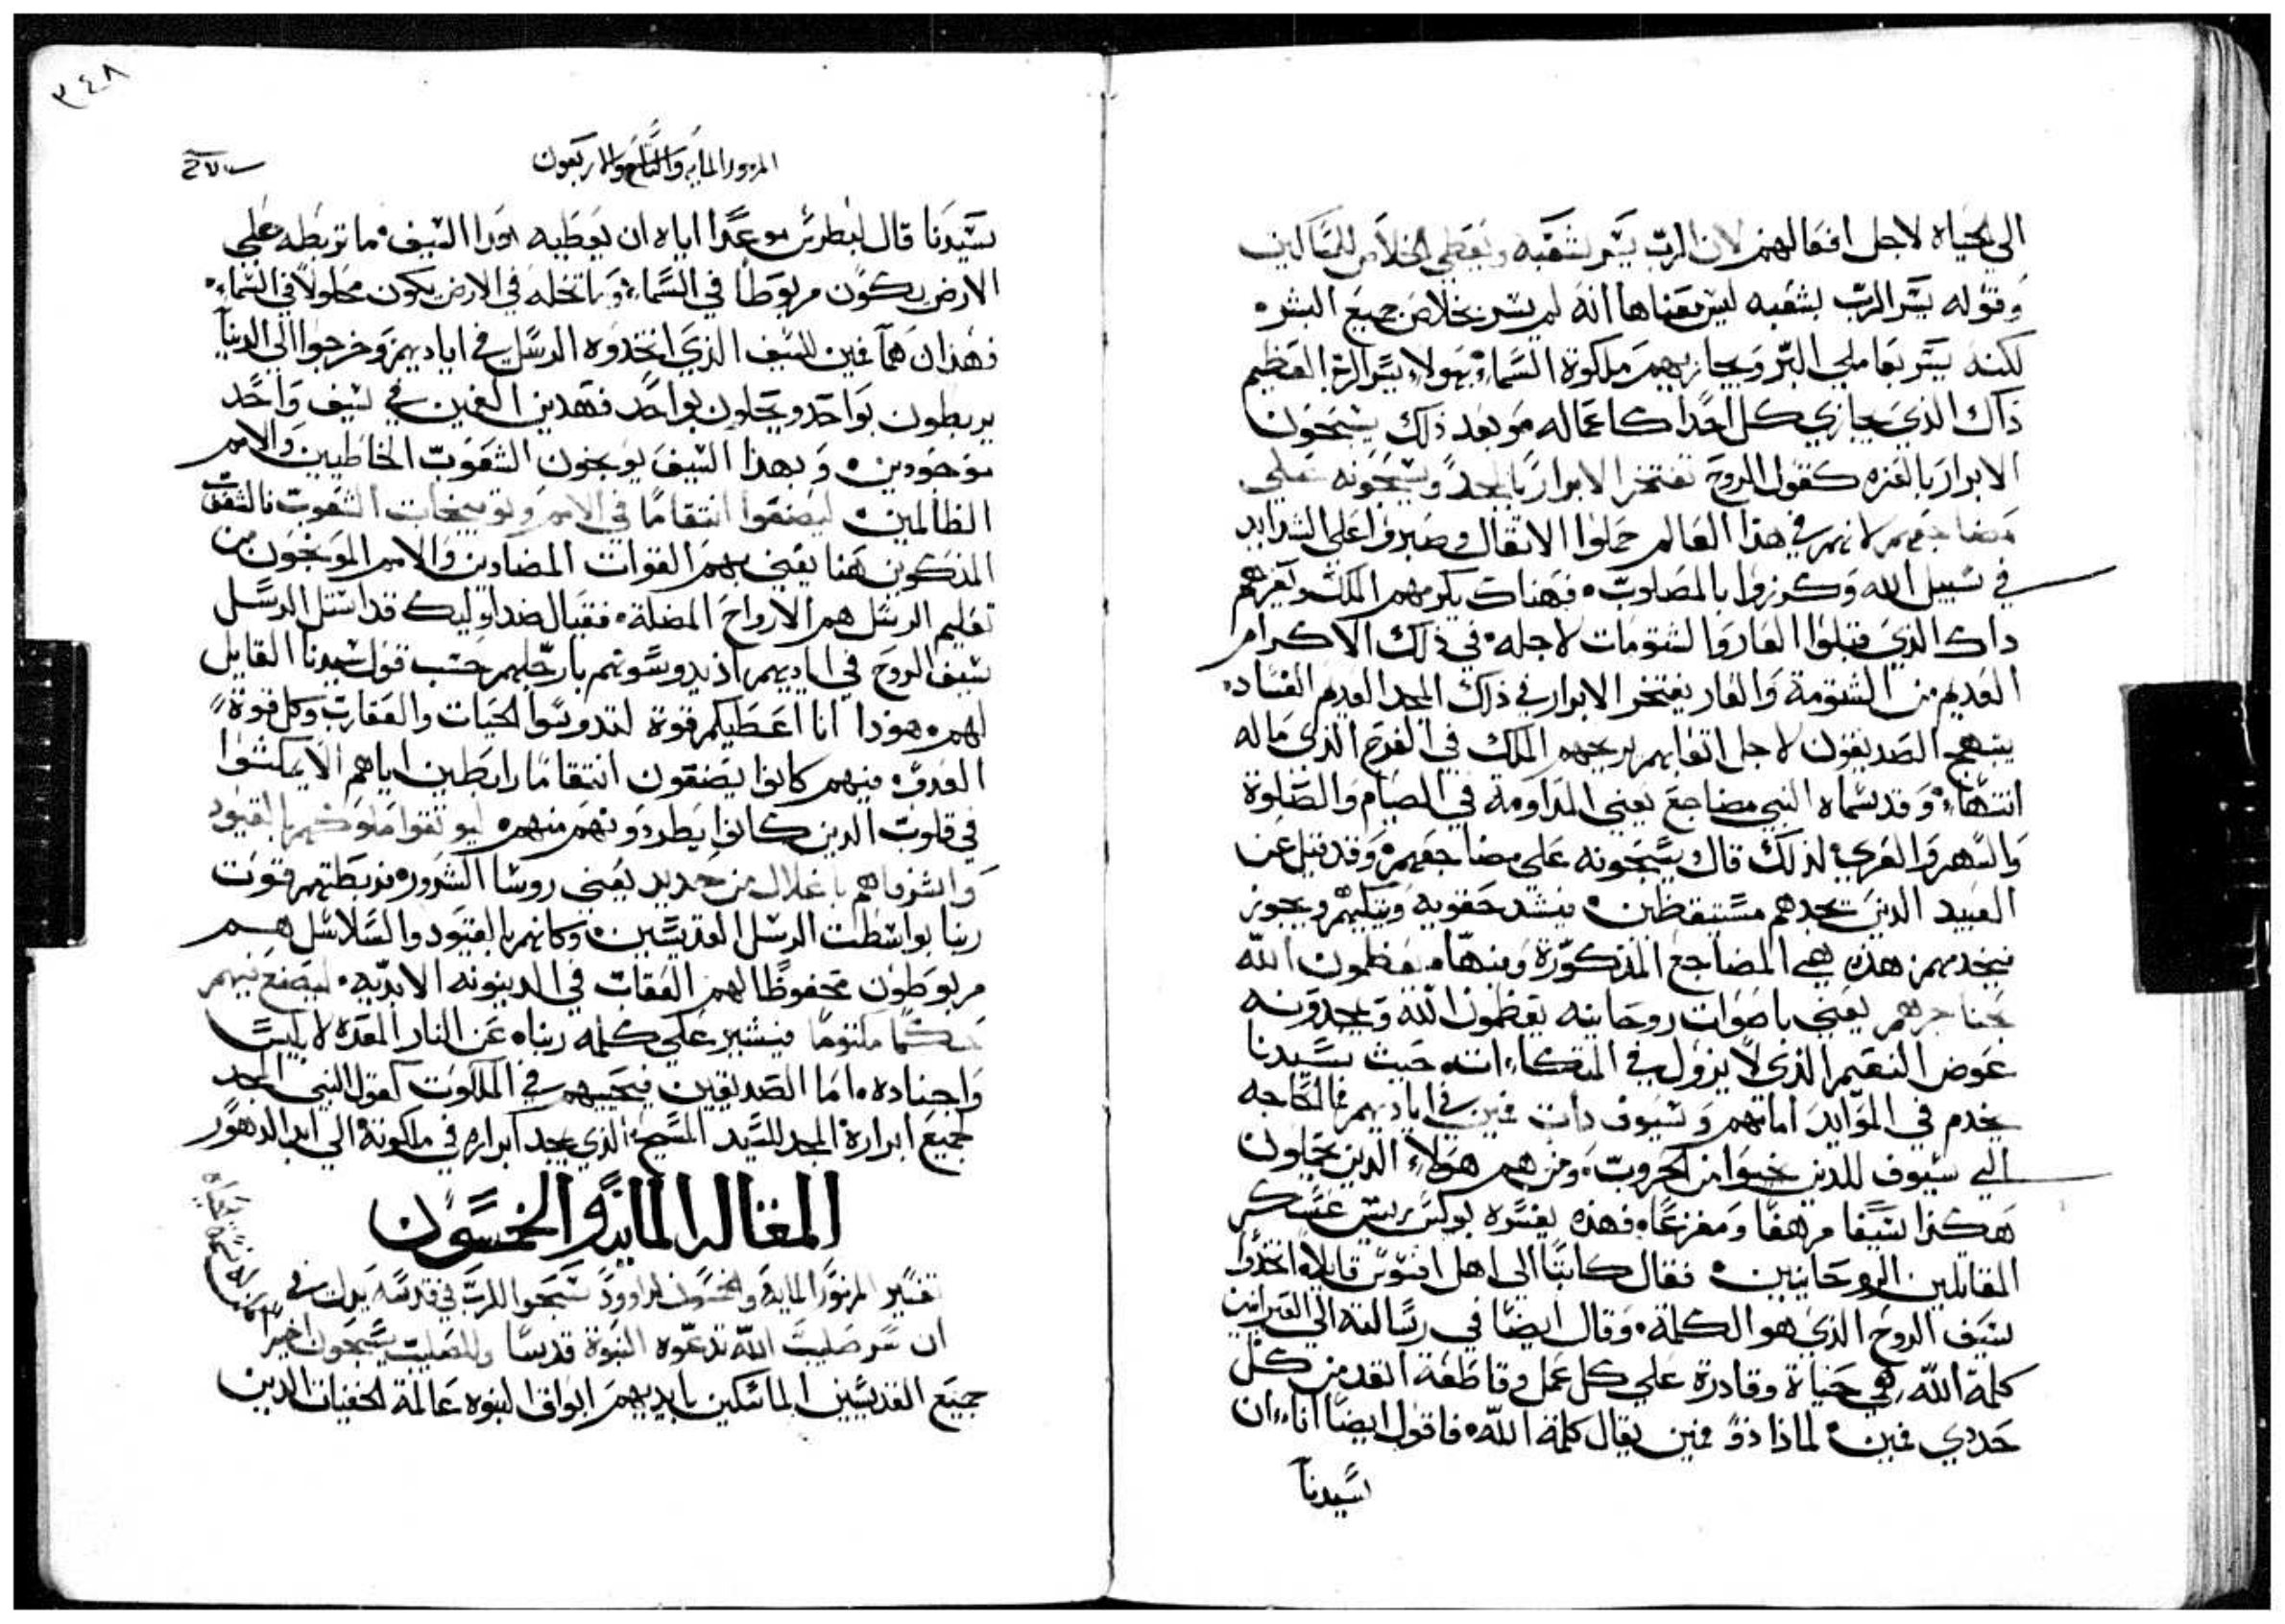 الي الحياة لاجل افعالهم لان الرب يسر بشعبه ويعطي الخلاص للمساكين
وقوله يسر الرب بشعبه ليس معناها انه لم يسر بخلاص جميع البشر.
لكنه يسر بعاملي البر ويجازيهم ملكوة السماء، بهولاء يسر الرب العظيم
ذاك الذي يجازي كل احدا كاعماله وبعد ذلك يسبحون
الابرار بالعزه كقول الروح تفتخر الابرار بالمجد ويسبحونه علي
مضاجعهم لانهم في هذا العالم حملوا الاثقال وصبروا علي الشدايد
في سبيل الله وكرزوا بالمصلوب. فهناك يكرمهم الملك ويعزهم
داك الذي قبلوا العار والشتومات لاجله. في ذلك الاكرام
العديم من الشتومة والعار يفتخر الابرار في ذلك المجد العديم الفساد.
يبتهج الصديقون لاجل اتعابهم يريحهم الملك في الفرح الذي ماله
انتهاء. وقد سماه النبي مضاجع يعني المداومة في الصيام والصلوة
والسهر والعري. لذلك قال يسبحونه علي مضاجعهم. وقد قيل عن
العبيد الذين تجدهم مستيقظين. فيشد حقويه ويتكيهم ويجوز
فيخدمهم. هذه هي المضاجع المذكورة ومنها. يعظمون الله
بحناجرهم يعني باصوات روحانيه يعظمون الله ويمجدونه
عوض النعيم الذي لا يزول في المتكاء انته حيث سيدنا
يخدم في الموايد امامهم وسيوف دات فمين في اياديهم فما الحاجه
الي سيوف للدين نجوا من الحروب. ومن هم هولاء الدين يحملون
هكذا سيفا مرهفا ومفزعا. فهذه يفسره بولس ريس عسكر
المقاتلين الروحانيين. فقال كاتبا الي اهل افسوس قايلا. اتخذوا
سيف الروح الذي هو الكلمة. وقال ايضا في رسالته الي العبرانيين
كلمة الله هي حياة وقادرة علي كل عمل وقاطعة انفد من كل
حددي فمين. لماذا ذو فمين يقال كلمة الله. فاقول ايضا انا، ان
سيدنا
٣٤٨
المزمور الماية والتاسع والاربعون
سيدنا قال لبطرس موعدا اياه ان يعطيه هدا السيف. ما تربطه علي
الارض يكون مربوطا في السماء. وما تحله في الارض يكون محلولا في السماء.
فهذان هما فمين للسيف الذي اتخذوه الرسل في اياديهم وخرجوا الي الدنيا
يربطون بواحد ويحلون بواحد فهدين الفمين في سيف واحد
موجودين. وبهذا السيف يوبخون الشعوب الخاطيين والامم
الظالمين. ليصنعوا انتقاما في الامم وتوبيخات الشعوب فالشعوب
المذكورين هنا يعني بهم القوات المضادين والامم الموبخون من
تعليم الرسل هم الارواح المضلة. فقبال ضد اوليك قد استل الرسل
سيف الروح في اياديهم اذ يدوسونهم بارجلهم حسب قول سيدنا القايل
لهم. هوذا انا اعطيكم قوة لتدوسوا الحيات والعقارب وكل قوة
العدو. فبهم كانوا يصنعون انتقاما رابطين اياهم الا يمكثوا
في قلوب الدين كانوا يطردونهم منهم. ليوثقوا ملوكهم بالقيود
واشرفاهم باغلال من حديد يعني روسا الشرور. فربطتهم قوت
ربنا بواسطت الرسل القديسين. وكانهم بالقيود والسلاسل هم
مربوطون محفوظا لهم العقاب في الدينونه الابديه. ليصنع فيهم
حكما مكتوما فيشير علي كلمه ربناه عن النار المعده لابليس
واجناده. اما الصديقين فيحييهم في الملكوت كقول النبي المجد
لجميع ابراره المجد للسيد المسيح الذي يمجد ابراره في ملكوته الي ابد الدهور
المقاله الماية والخمسون
تفسير المزمور الماية والخمسون لداوود سبحوا الرب في قدسه يدل في
ان سر صليب الله تدعوه النبوة قدسا وللصليب يسبحون اخيرا
جميع القديسين الماسكين بايديهم ابواق النبوه عالمة الخفيات الدين